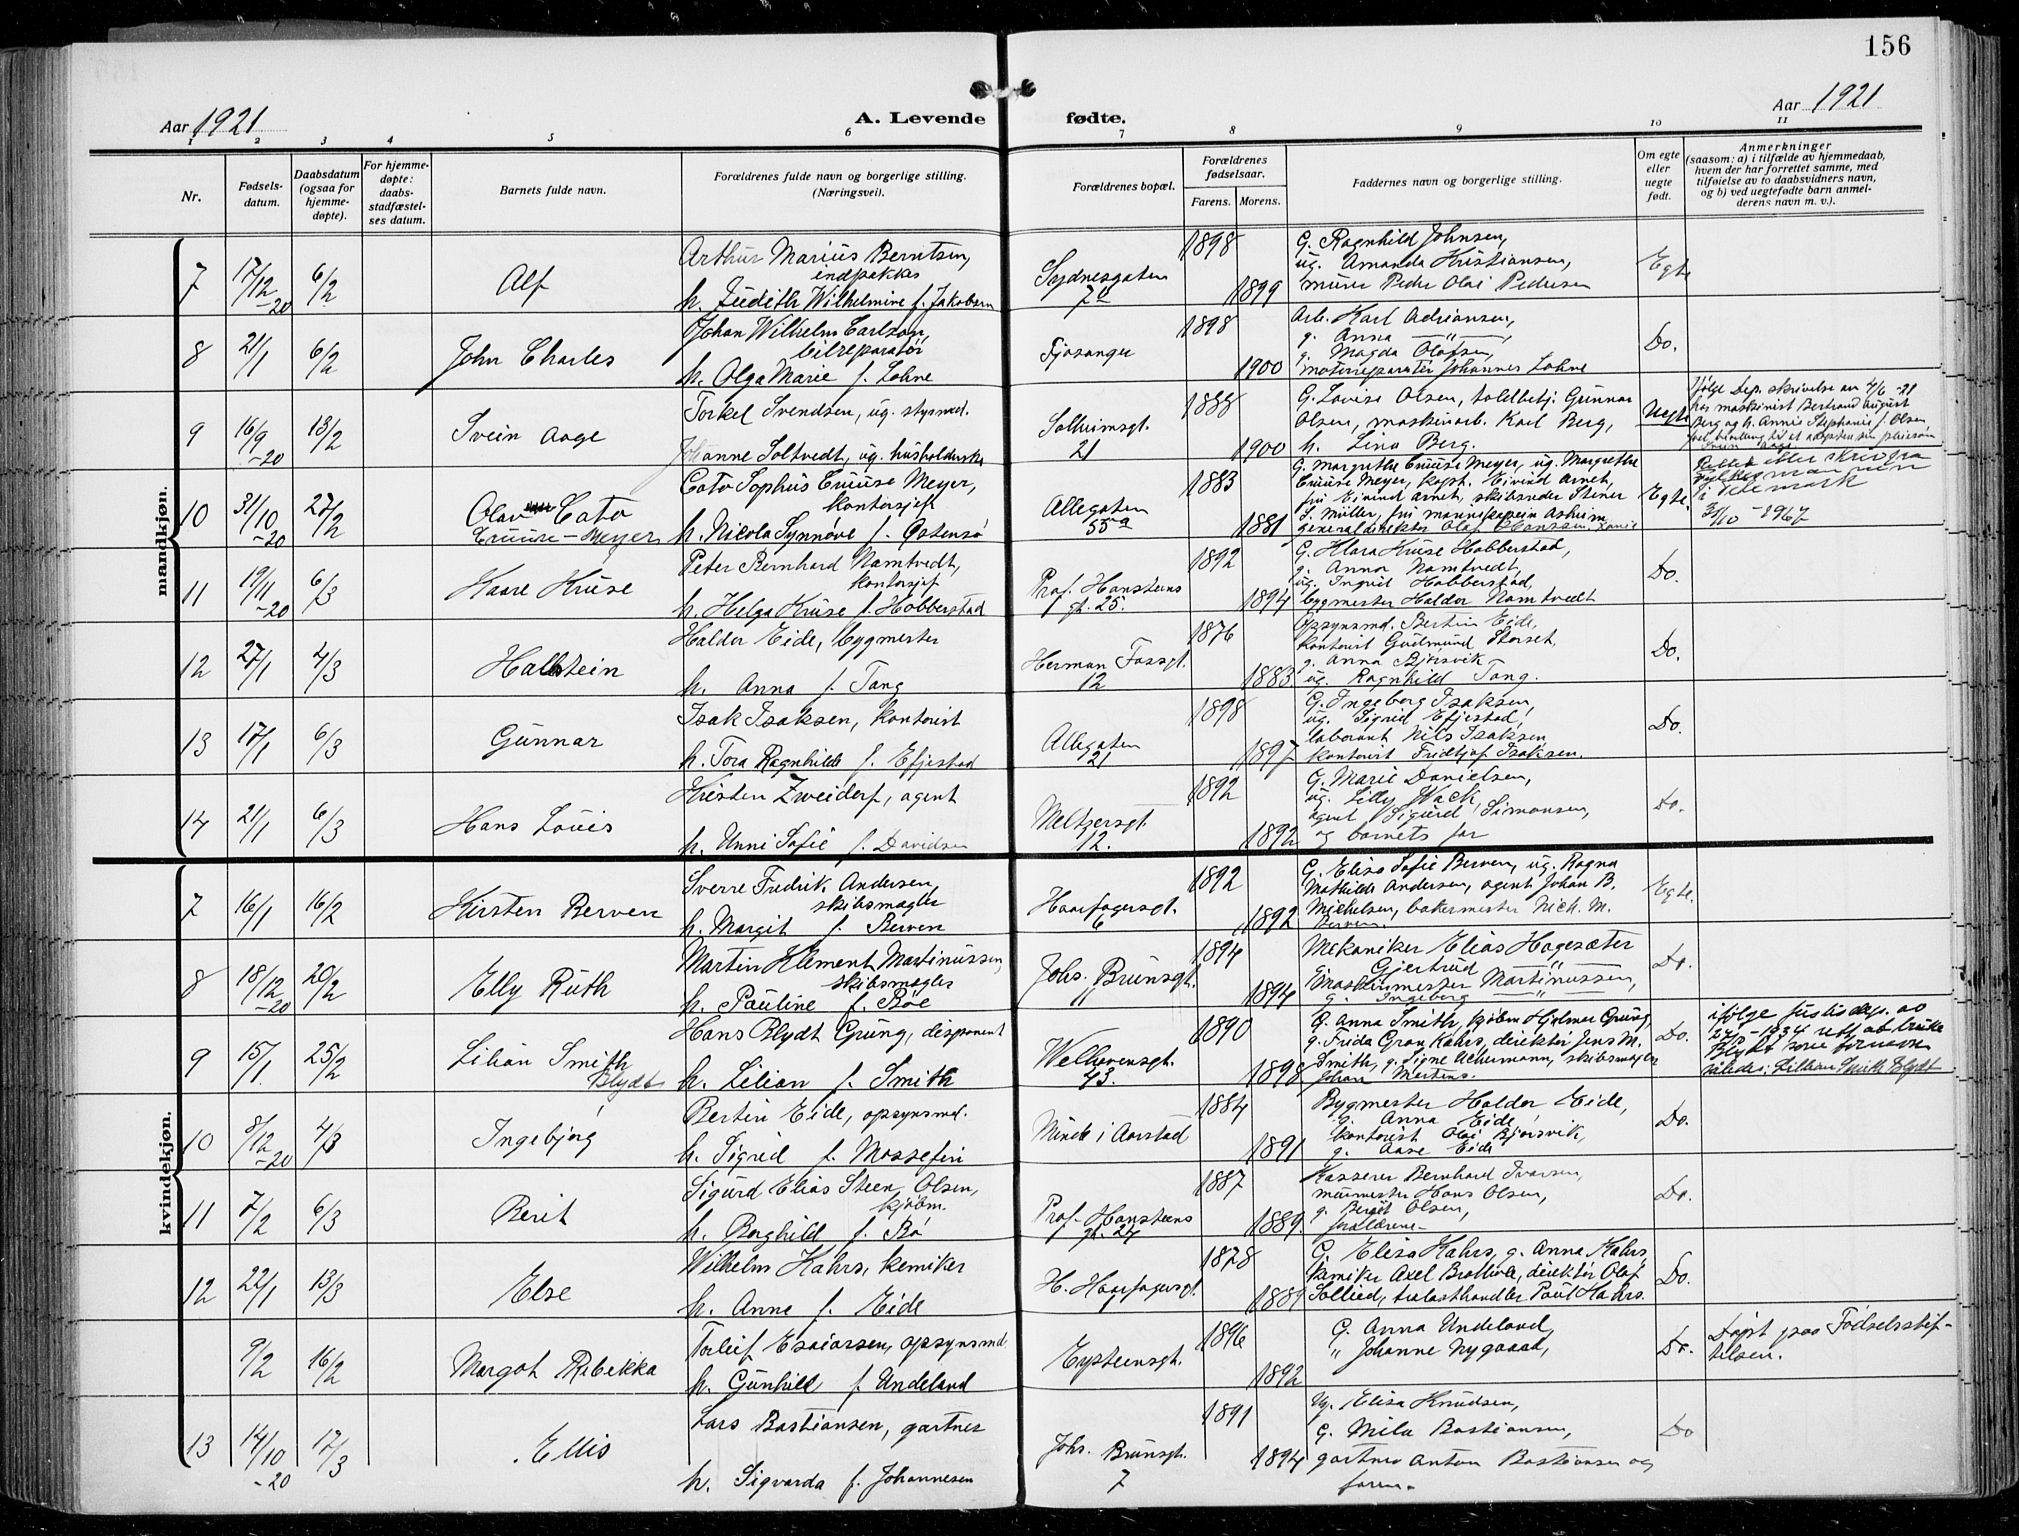 156
Aar 1921
A. Levende fødte.
Aar 1921
1 2 3 4 5 6 7 8 9 10 11
Nr.
Fødsels-
datum.
Daabsdatum
(ogsaa for
hjemme-
døpte).
For hjemme-
døpte:
daabs-
stadfæstel-
ses datum.
Barnets fulde navn.
Forældrenes fulde navn og borgerlige stilling.
(Næringsvei).
Forældrenes bopæl.
Forældrenes
fødselsaar.
Farens. Morens.
Faddernes navn og borgerlige stilling.
Om egte
eller
uegte
født.
Anmerkninger
(saasom: a) i tilfælde av hjemmedaab,
hvem der har forrettet samme, med
tilføielse av to daabsvidners navn,
og b) ved uegtefødte barn anmel-
derens navn m. v.).
mandkjøn.
7 17/12 -20 6/2 Alf
Arthur Marius Berntsen,
indpakks
h. Judith Wilhelmine f. Jakobsen
Sydnesgaten
7
1898
1899
G. Ragnhild Johnsen,
ug. Amanda Kristiansen,
murer Peder Olai Pedersen
Egte
8 21/1 6/2 John Charles
Johan Wilhelm Carlson,
bilreparatør
h. Olga Marie f. Lohne
Fjøsanger
1898
1900
Arb. Karl Adriansen,
g. Anna — " —,
g. Magda Olafsen,
motorreparatør Johannes Lohne
Do.
9 16/9 -20 13/2 Svein Aage
Torkel Svendsen, ug. styrmd.
Johanne Soltvedt, ug. husholderske
Solheimsgt.
21
1888
1900
G. Lovise Olsen, toldbetj. Gunnar
Olsen, maskinarb. Karl Berg,
h. Lina Berg.
Uegte
Ifølge Dep. skrivelse av 4/6 -21
har maskinist Bertrand August
Berg og h. Annie Stephanie f. Olsen
10 31/10 -20 27/2 Olav Cato
Cruuse-Meyer
Cato Sophus Cruuse Meyer,
kontorsjef
h. Nicola Synnøve f. Østensø
Allegaten
55a
1883
1881
G. Margrethe Cruuse Meyer, ug. Margrethe
Cruuse Meyer, kapt. Eivind Arnet,
fru Eivind Arnet, skibsreder Steiner
S. Müller, fru
generaldirektør Olaf Hansson
Egte.
i Telemark
31/10 - 1967
11 19/11 -20 6/3 Kaare Kruse
Peter Bernhard Namtvedt,
kontorsjef
h. Helga Kruse f. Hobberstad
Prof. Hansteens
gt. 25.
1892
1894
G. Klara Kruse Hobberstad,
g. Anna Namtvedt,
ug. Ingrid Hobberstad,
bygmester Haldor Namtvedt
Do.
12 27/1 4/3 Hallstein
Haldor Eide, bygmester
h. Anna f. Tang
Herman Fossgt.
12
1876
1883
Opsynsmd. Bertin Eide,
kontorist Gudmund Storset,
g. Anna Bjørsvik
ug. Ragnhild Tang.
Do.
13 17/1 6/3 Gunnar
Isak Isaksen, kontorist
h. Tora Ragnhild f. Efjestad
Allegaten
21
1898
1897
G. Ingeborg Isaksen,
ug. Sigrid Efjestad,
laborant Nils Isaksen
kontorist Fridtjof Isaksen.
Do.
14 21/1 6/3 Hans Louis
Kristen Zweidorf, agent
h. Unni Sofie f. Davidsen
Meltzersgt.
12.
1892
1892
G. Marie Danielsen,
ug. Lilly Wack,
agent Sigurd Simonsen,
og barnets far
Do.
kvindekjøn.
7 16/1 16/2 Kirsten Berven
Sverre Fredrik Andersen,
skibsmægler
h. Margit f. Berven
Haarfagersgt.
6
1892
1892
G. Elise Sofie Berven, ug. Ragna
Mathilde Andersen, agent Johan B.
Michelsen, bakermester Nich. M.
Berven.
Egte.
8 18/12 -20 20/2 Elly Ruth
Martin Klement Martinussen,
skibsmægler
h. Pauline f. Bøe
Johs. Brunsgt.
11
1894
1894
Mekaniker Elias Hagesæter
g. Gjertrud "
Maskinmester Martinussen,
g. Ingeborg — " —
Do.
9 15/1. 25/2 Lilian Smith
Blydt
Hans Blydt Grung, disponent
h. Lilian f. Smith
Welhavensgt.
43.
1890
1898
G. Anna Smith, kjøbm Hjalmar Grung,
g. Frida Gran Kahrs, direktør Jens M.
Smith, g. Signe Ackermann, skibsmægler
Johan Martens.
Do.
ifølge justisdep. av
24/5 - 1934 rett at bruke
Blydt som fornavn
således: Lillian Smith Blydt
10 8/12 -20 4/3 Ingebjørg
Bertin Eide, opsynsmd.
h. Sigrid f. Mossefin
Minde i Aarstad
1884
1891
Bygmester Haldor Eide,
g. Anna Eide,
kontorist Olai Bjørsvik,
g. Aase Eide
Do.
11 7/2 6/3 Berit
Sigurd Elias Steen Olsen,
kjøbm.
h. Borghild f. Bø
Prof. Hansteens
gt. 24
1887
1889.
Kasserer Bernhard Ivarsen,
murmester Hans Olsen,
g. Berget Olsen,
forældrene
Do.
12 22/1 13/3 Else
Wilhelm Kahrs, kemiker
h. Anne f. Eide
H. Haarfagersgt.
1
1878
1889
G. Elisa Kahrs, g. Anna Kahrs,
kemiker Axel Brottveit, direktør Olaf
Sollied, trelasthandler Paul Kahrs.
Do.
9/2 16/2 Margot Rebekka
Torleif Esaiassen, opsynsmd
h. Gunhild f. Undeland
Eysteinsgt.
1896
1892
G. Anna Undeland,
" Johanne Nygaard,
Do.
Døpt paa Fødselsstif-
telsen.
13 14/10 -20 17/3 Ellis
Lars Bastiansen, gartner
h. Sigvarda f. Johannesen
Johs. Brunsgt.
7
1891
1894
Ug. Elisa Knudsen,
G. Mila Bastiansen,
gartner Anton Bastiansen og
faren.
Do